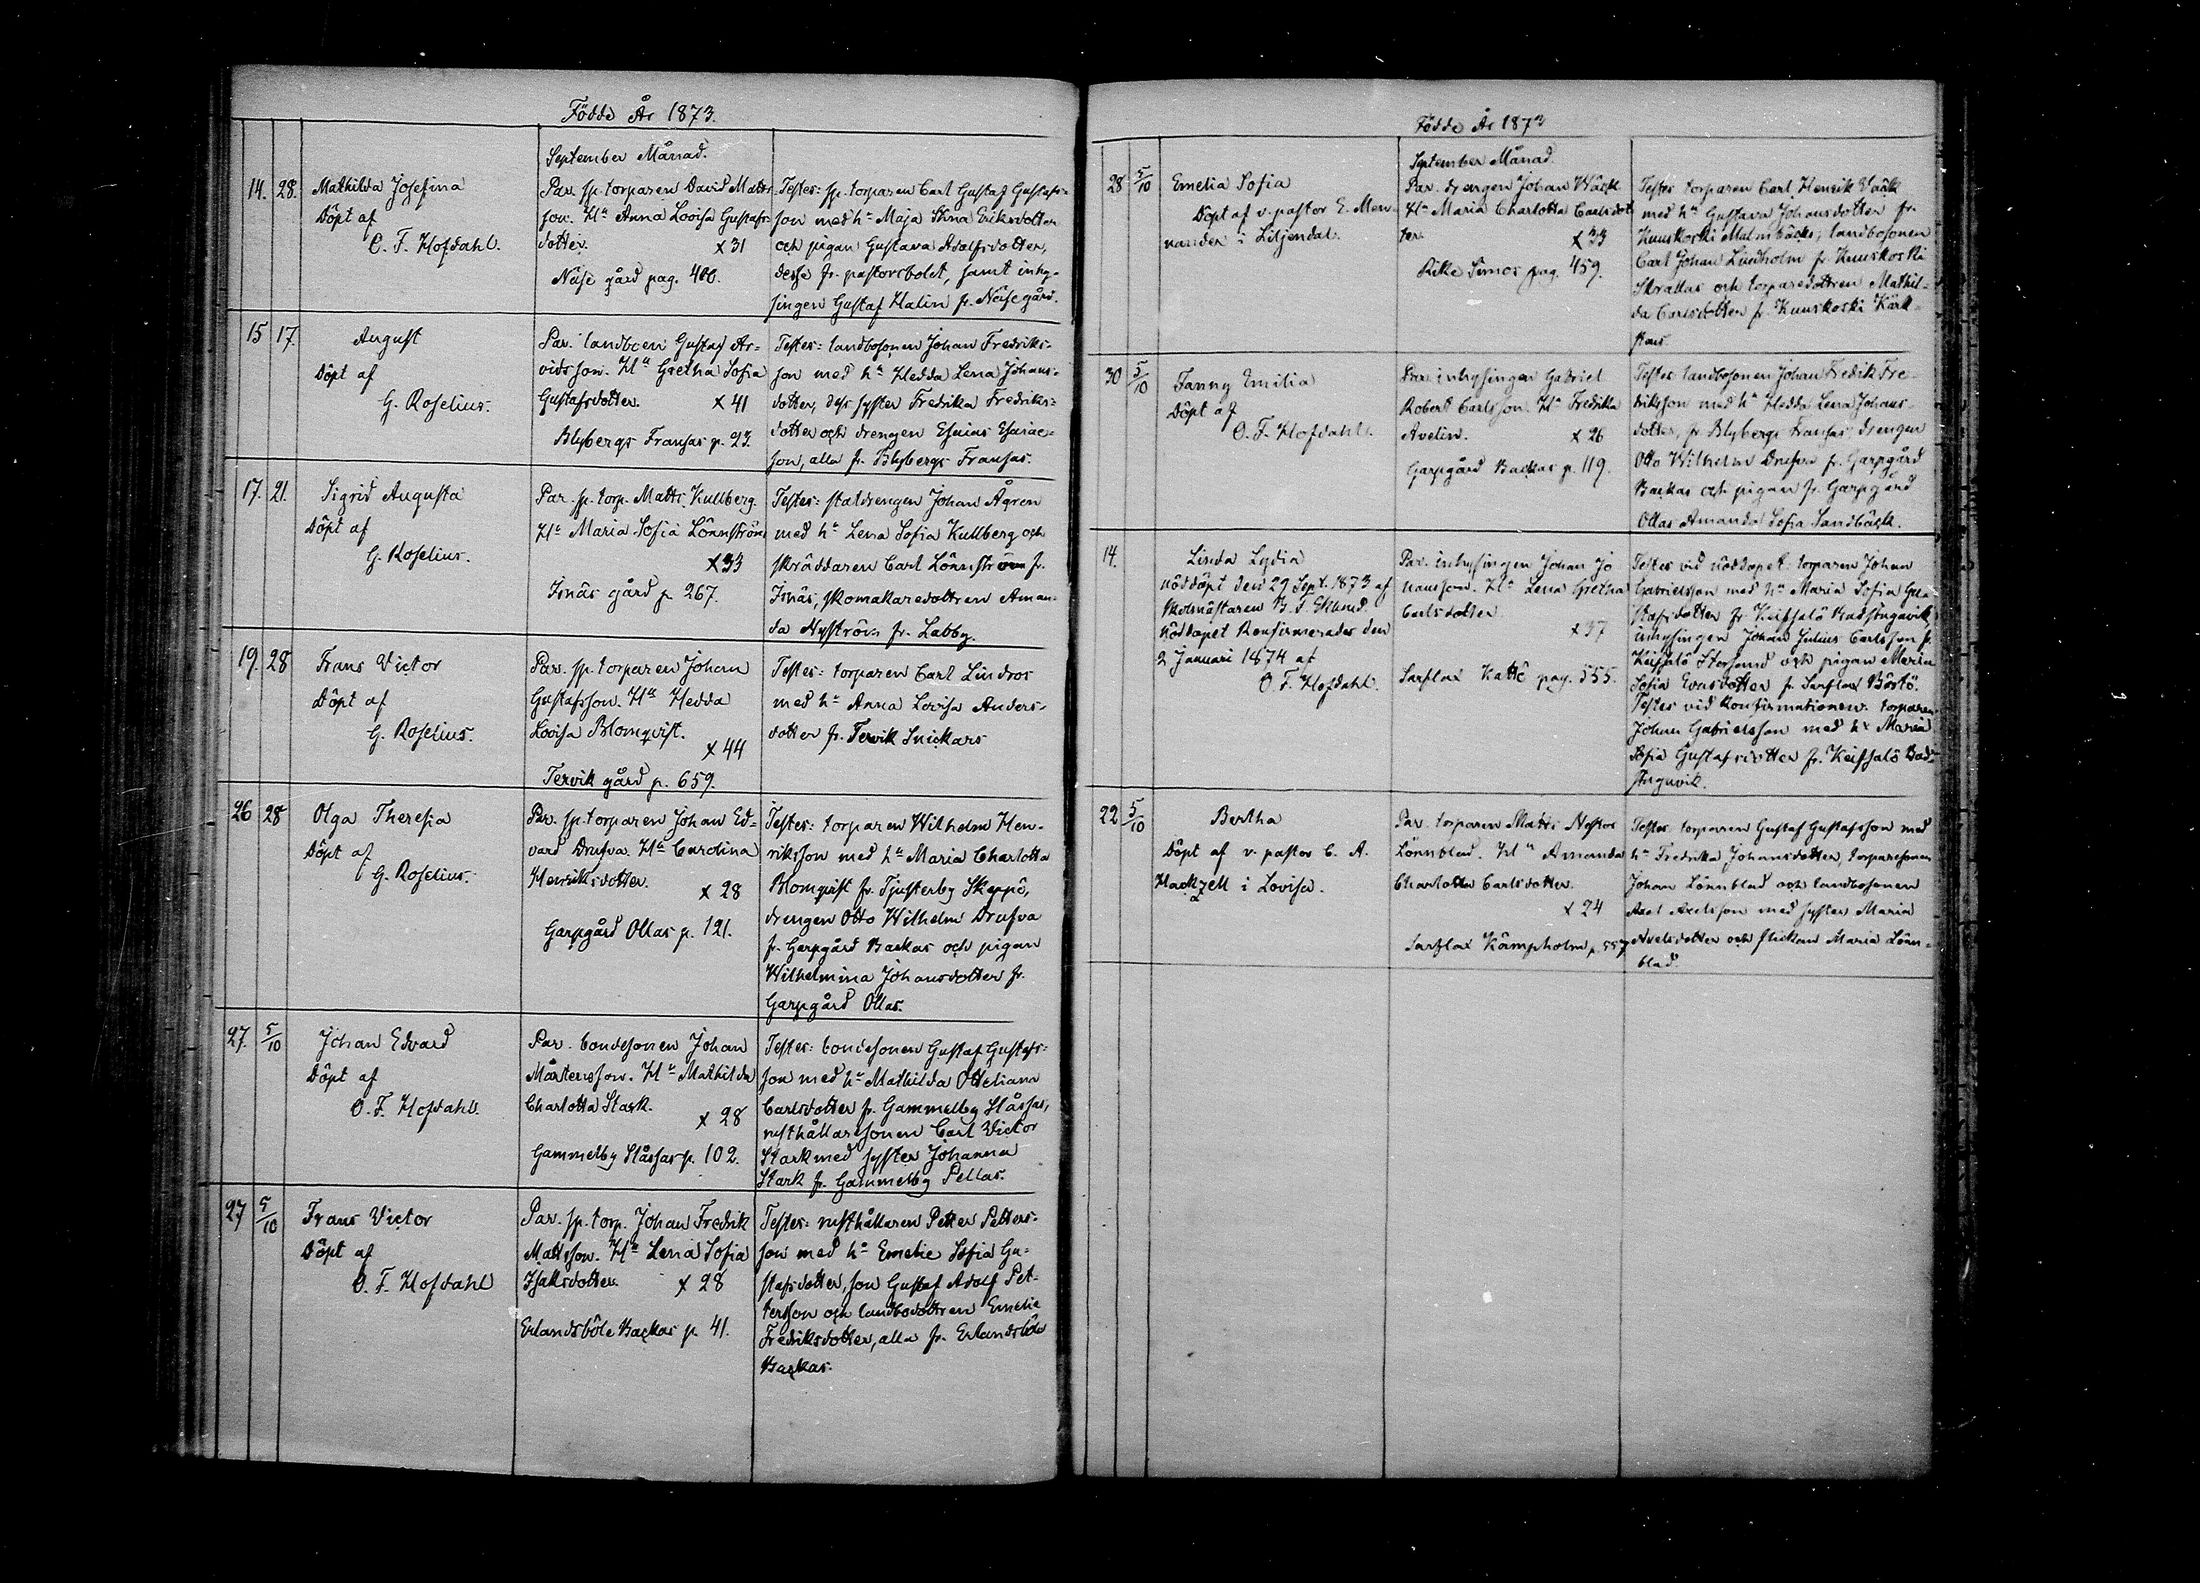 Födde År 1873.
September Månad.
14. 28. Mathilda Josefina
Döpt af
O. F. Hofdahl.
Par. sp. torparen David Matts
son. Hu Anna Lovisa Gustafs
dotter. x 31
Näse gård pag. 400.
Testes: sp. torparen Carl Gustaf Gustafs-
son med hu Maja Stina Eriksdotter
och pigan Gustava Adolfsdotter,
desse fr. pastorsbolet, samt inhy-
singen Gustaf Malin fr. Näse gård.
15 17. August
Döpt af
G. Roselius.
Par. landboen Gustaf Ar-
vidsson. Hu Gretha Sofia
Gustafsdotter. x 41
Blybergs Fransas p. 23.
Testes: landbosonen Johan Fredriks-
son med hu Hedda Lena Johans-
dotter, dess syster Fredrika Fredriks-
dotter och drengen Esaias Esaiae-
son, alla fr. Blybergs Fransas.
17. 21. Sigrid Augusta
Döpt af
G. Roselius.
Par. sp. torp. Matts Kullberg.
Hu Maria Sofia Lönnström
x 33
Isnäs gård p. 267.
Testes: staldrengen Johan Ågren
med hu Lena Sofia Kullberg och
skräddaren Carl Lönnström fr.
Isnäs, skomakaredottren Aman-
da Nyström fr. Labby.
19. 28 Frans Victor
Döpt af
G. Roselius.
Par. sp. torparen Johan
Gustafsson. Hu Hedda
Lovisa Blomqvist.
x 44
Tervik gård p. 659.
Testes: torparen Carl Lindros
med hu Anna Lovisa Anders-
dotter fr. Tervik Snickars
26 28 Olga Theresia
Döpt af
G. Roselius.
Par. sp. torparen Johan Ed-
vard Drufva. Hu Carolina
Henriksdotter. x 28
Garpgård Ollas p. 121.
Testes: torparen Wilhelm Hen-
riksson med hu Maria Charlotta
Blomqvist fr. Tjusterby Skeppö,
drengen Otto Wilhelm Drufva
fr. Garpgård Backas och pigan
Wilhelmina Johansdotter fr.
Garpgård Ollas.
27. 5/10 Johan Edvard
Döpt af
O. F. Hofdahl.
Par. bondesonen Johan
Mårtensson. Hu Mathilda
Charlotta Stark.
x 28
Gammelby Slåssas p. 102.
Testes: bondesonen Gustaf Gustafs-
son med hu Mathilda Otteliana
Carlsdotter fr. Gammelby Slåssas,
rusthållaresonen Carl Victor
Stark med syster Johanna
Stark fr. Gammelby Pellas.
27 5/10 Frans Victor
Döpt af
O. F. Hofdahl
Par. sp. torp. Johan Fredrik
Matsson. Hu Lena Sofia
Isaksdotter. x 28
Erlandsböle Backas p. 41.
Testes: rusthållaren Petter Petters-
son med hu Emelie Sofia Gu-
stafsdotter, son Gustaf Adolf Pet-
tersson och landbodottren Emelie
Fredriksdotter, alla fr. Erlandsböle
Backas.
Födde År 1873
September Månad.
28 5/10 Emelia Sofia
Döpt af v. pastor E. Men-
nander i Liljendal.
Par. drengen Johan Wäck
Hu Maria Charlotta Carlsdot
ter. x 33
Rike Simos pag. 459.
Testes torparen Carl Henrik Wäck
med hu Gustava Johansdotter fr.
Kuuskoski Malmbäcks, landbosonen
Carl Johan Lindholm fr. Kuuskoski
Skrallas och torparedottren Mathil-
da Carlsdotter fr. Kuuskoski Kärk-
30 5/10 Fanny Emilia
Döpt af
O. F. Hofdahl.
Par. inhysingen Gabriel
Robert Carlsson. Hu Fredrika
Avelin. x 26
Garpgård Backas p. 119.
Testes landbosonen Johan Fredik Fre-
driksson med hu Hedda Lena Johans-
dotter, fr. Blybergs Fransas, drengen
Otto Wilhelm Drufva fr. Garpgård
Backas och pigan fr. Garpgård
Ollas Amanda Sofia Sandbäck.
14. Linda Lydia
nöddöpt den 29 Sept. 1873 af
skolmästaren B. F. Eklund.
Nöddopet konfirmerades den
2 Januari 1874 af
O. F. Hofdahl.
Par. inhysingen Johan Jo
hansson. Hu Lena Gretha
Carlsdotter
x 37
Sarflax Kattö pag. 555.
Testes vid nöddopet. torparen Johan
Gabrielsson med hu Maria Sofia Gu-
stafsdotter fr. Keifsalö Badstuguvik,
inhysingen Johan Julius Carlsson fr.
Keifsalö Storsund och pigan Maria
Sofia dotter fr. Sarflax Böstö.
Testes vid konfirmationen. torparen
Johan Gabrielsson med hu Maria
Sofia Gustafsdotter fr. Keifsalö Bad-
stuguvik.
22 5/10 Bertha
Döpt af v. pastor C. A.
Hackzell i Lovisa.
Par. torparen Matts Nestor
Lönnblad. Hu Amanda
Charlotta Carlsdotter.
x 24
Sarflax Kämpholm p. 557
Testes torparen Gustaf Gustafsson med
hu Fredrika Johansdotter, torparesonen
Johan Lönnblad och landbosonen
Axel Axelsson med syster Maria
Axelsdotter och flickan Maria Lönn-
blad.